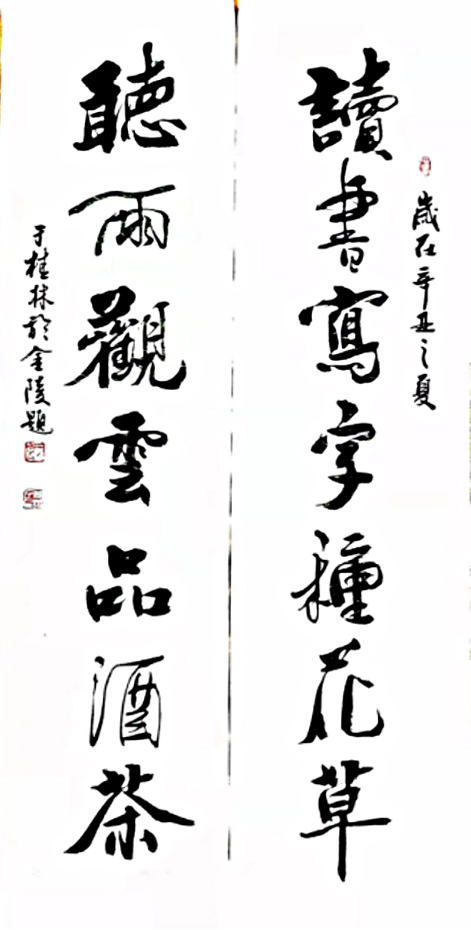 歲在辛丑之夏
讀書寫字種花草
聽雨觀雲品酒茶
于桂林於金陵題